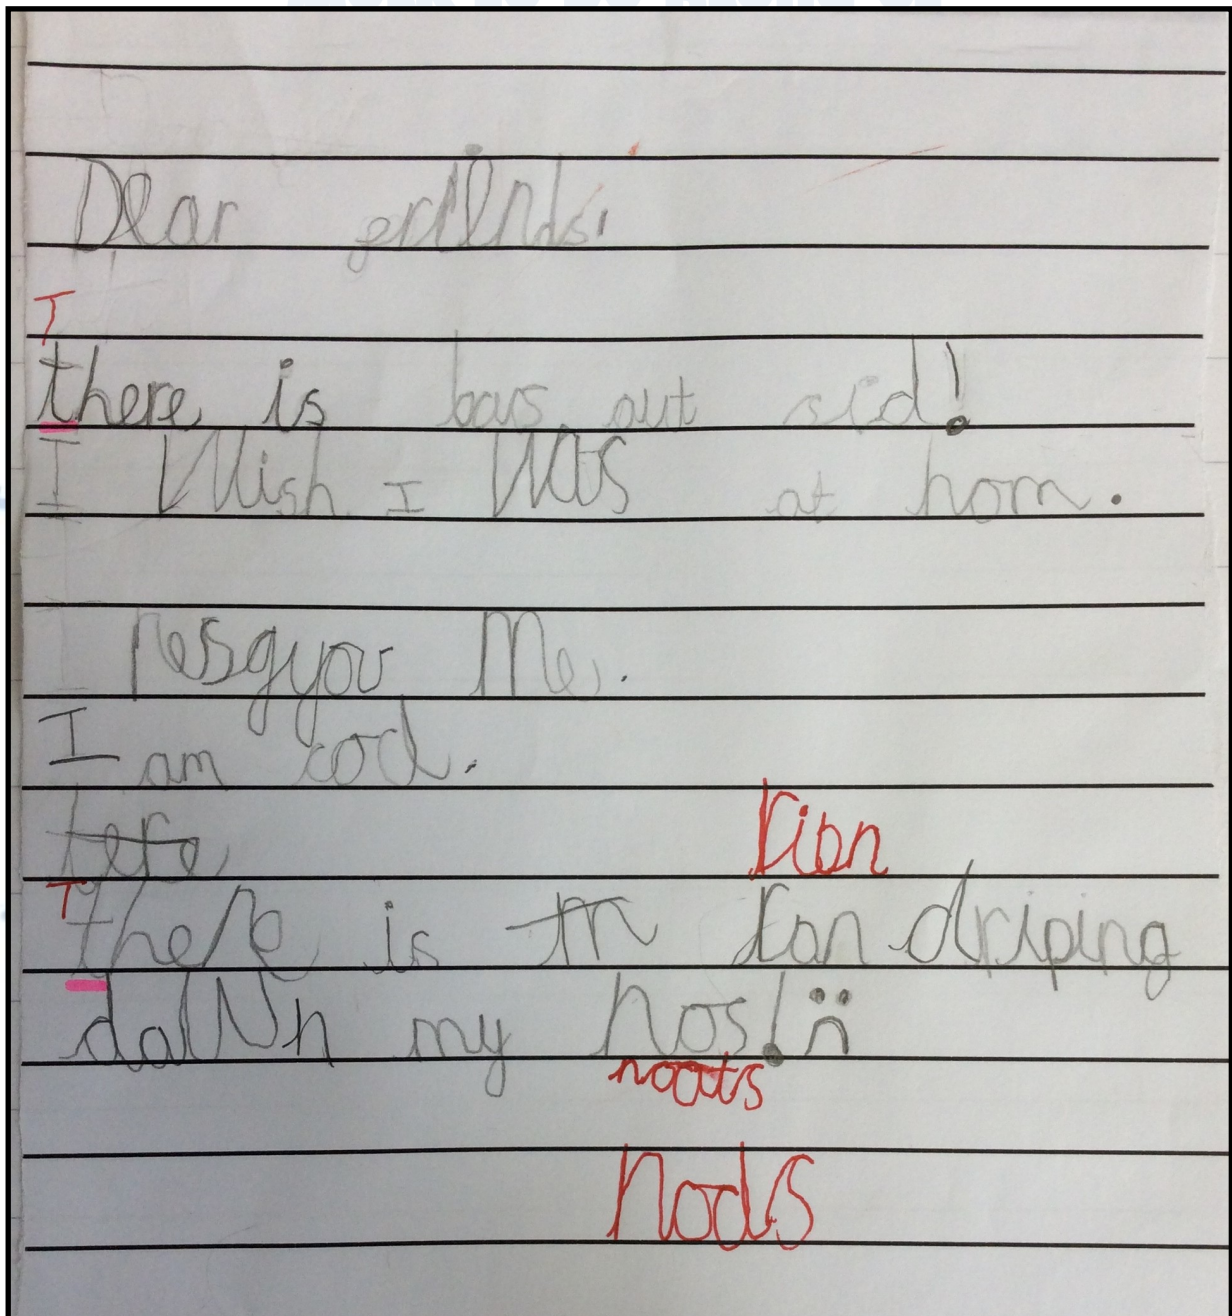 Dear frIends,
T
there is bars out sid!
I Wish I Was at hom.
I resgyou Me.
I am cod.
tere
rion
T
there is m ran driping
dalwn my nos!
noots
nods